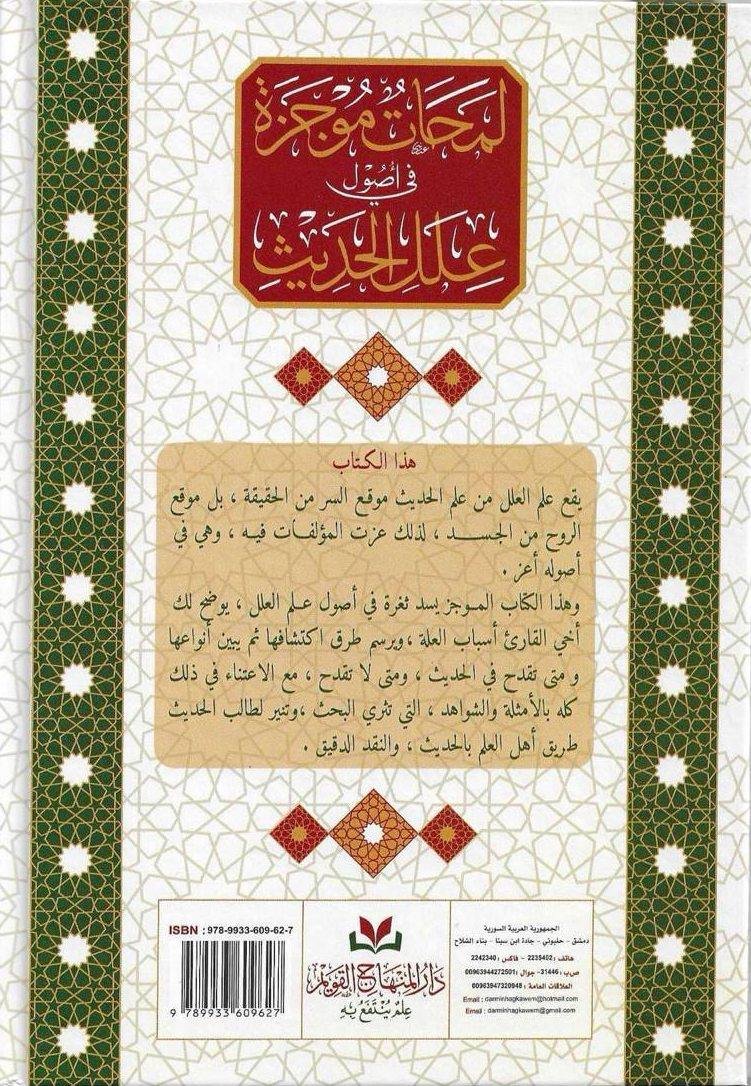 لمحات موجزة
في أصول
علل الحديث
هذا الكتاب
يقع علم العلل من علم الحديث موقع السر من الحقيقة ، بل موقع
الروح من الجسد ، لذلك عزت المؤلفات فيه ، وهي في
أصوله أعز .
وهذا الكتاب الموجز يسد ثغرة في أصول علم العلل ، يوضح لك
أخي القارئ أسباب العلة ،ويرسم طرق اكتشافها ثم يبين أنواعها
ومتى تقدح في الحديث ، ومتى لا تقدح ، مع الاعتناء في ذلك
كله بالأمثلة والشواهد ، التي تثري البحث ،وتنير لطالب الحديث
طريق أهل العلم بالحديث ، والنقد الدقيق .
الجمهورية العربية السورية
دمشق - حلبوني - جادة ابن سينا - بناء الشلاح
هاتف : 2235402 - فاكس : 2242340
ص ب : 31446 - جوال : 00963944272501
العلاقات العامة : 00963947320948
Email : darminhagkawem@hotmail.com
Email : darminhagkawem@gmail.com
دار المنهاج القويم
علم ينتفع به
ISBN : 978-9933-609-62-7
9 789933 609627